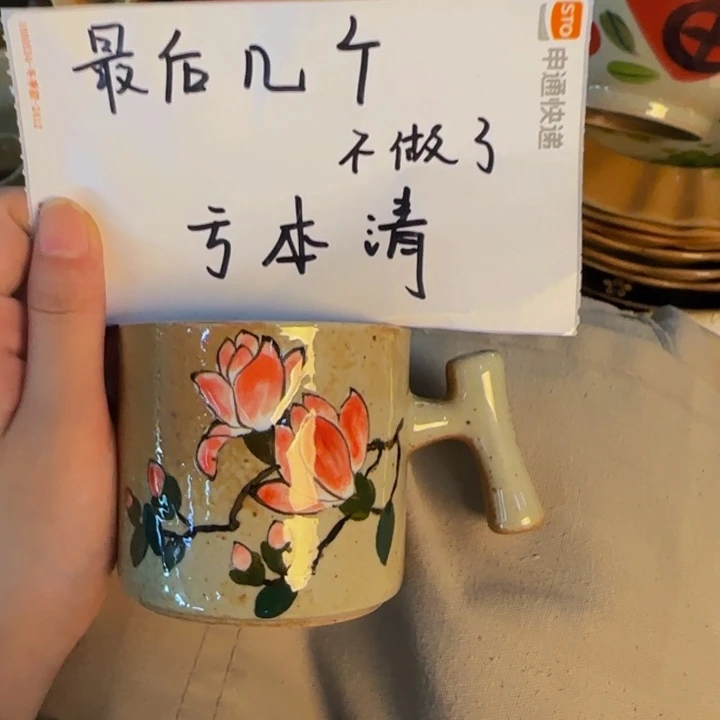 最后几个
不做了
亏本清
STO
申通快递